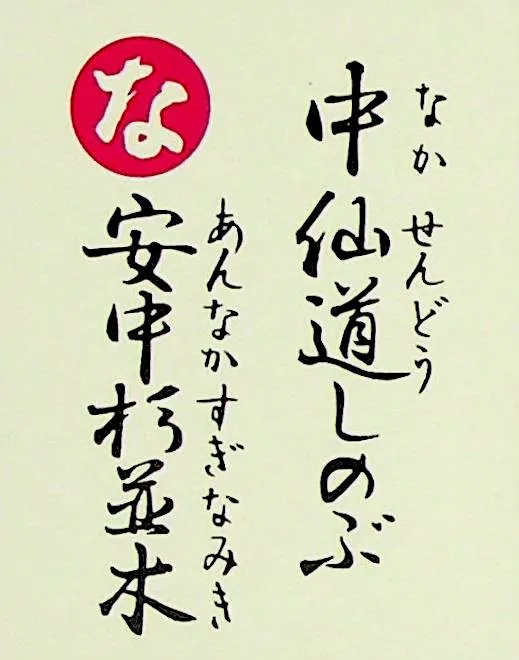 な
中仙道しのぶ
なかせんどう
安中杉並木
あんなかすぎなみき